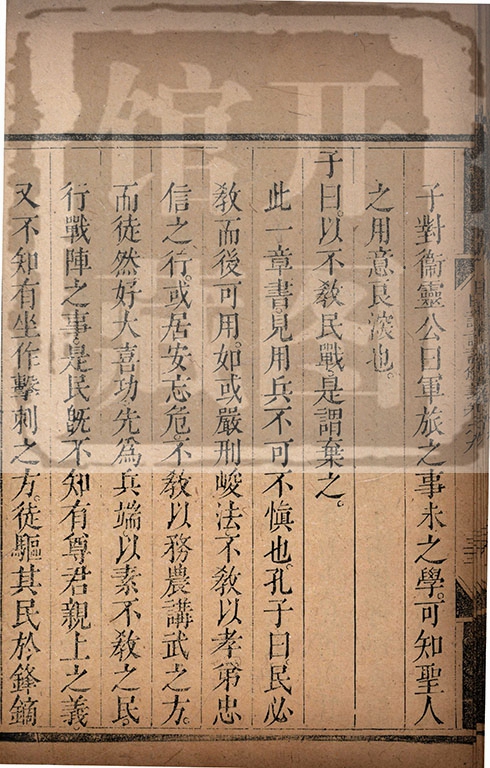 子對衞靈公曰軍旅之事未之學。可知聖人
之用意良深也。
子曰。以不敎民戰。是謂棄之。
此一章書。見用兵不可不愼也。孔子曰民必
敎而後可用。如或嚴刑峻法。不敎以孝弟忠
信之行。或居安忘危。不敎以務農講武之方。
而徒然好大喜功先爲兵端以素不敎之民。
行戰陣之事。是民旣不知有尊君親上之義。
又不知有坐作擊刺之方。徒驅其民於鋒鏑